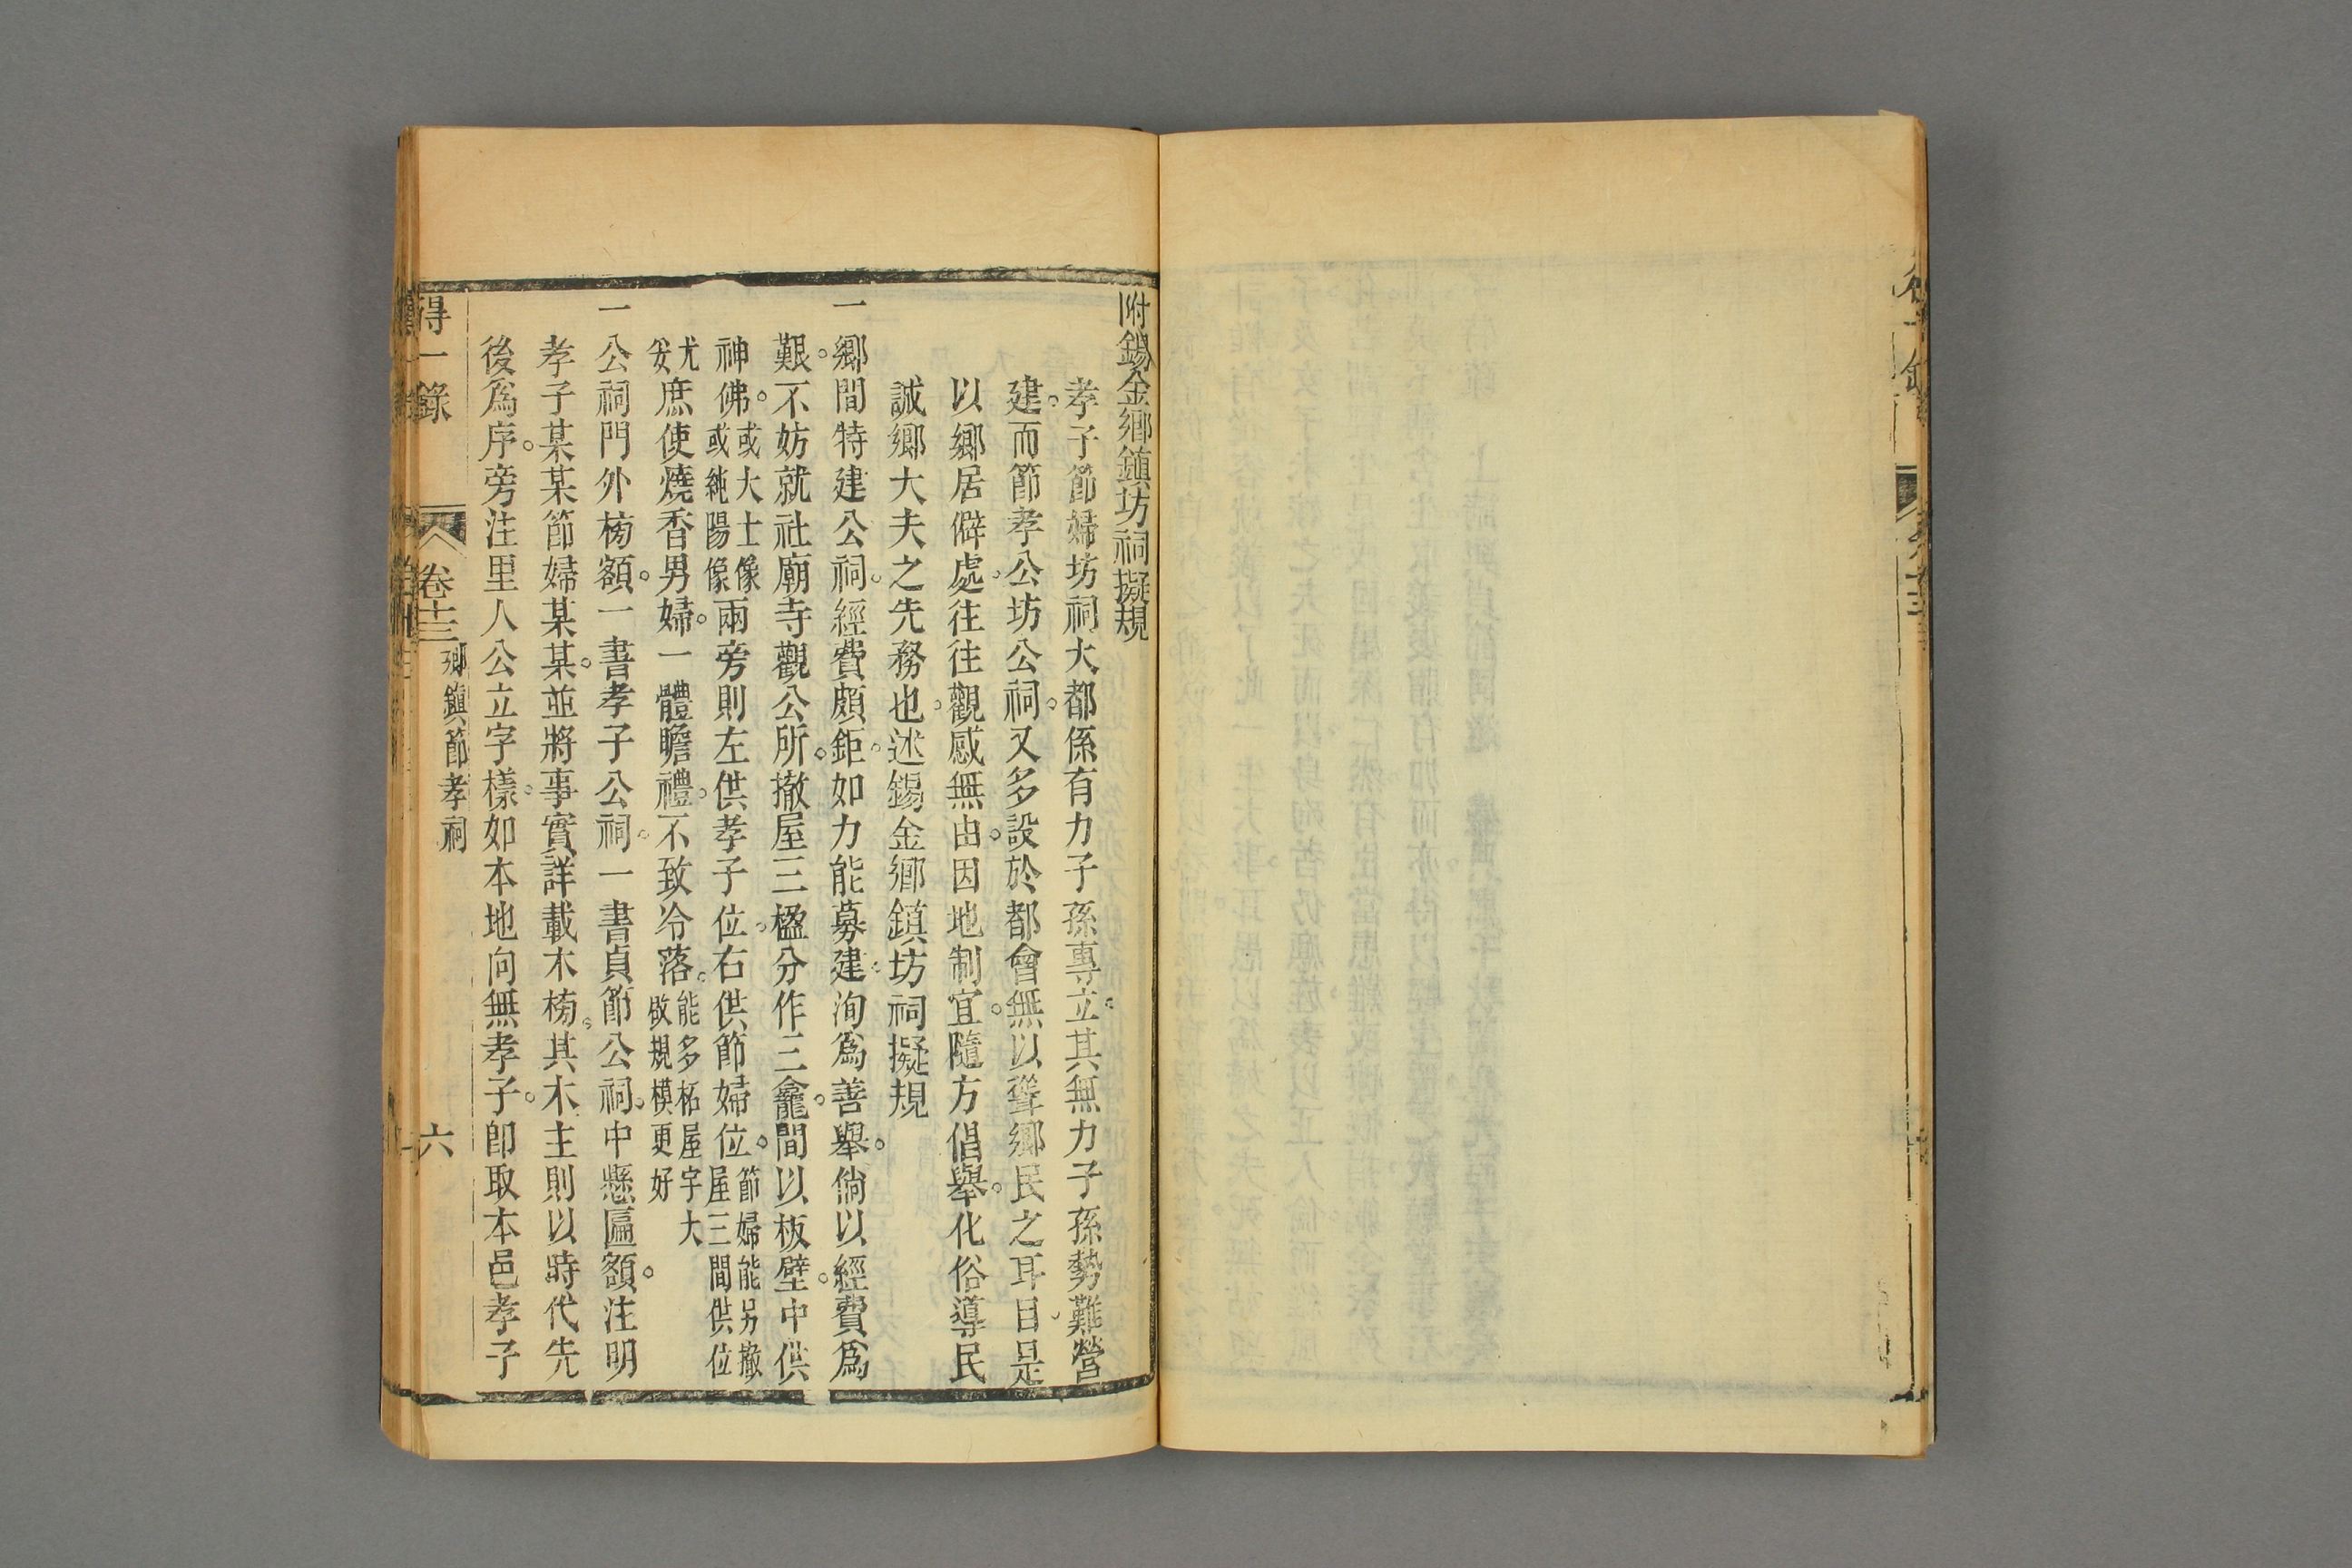 附錫金鄉鎮坊祠擬規
孝子節婦坊祠大都係有力子孫專立。其無力子孫勢難營
建。而節孝公坊公祠。又多設於都會無以聳鄉民之耳目是
以鄉居僻處。往往觀感無由。因地制宜。隨方倡舉。化俗導民
誠鄉大夫之先務也。述錫金鄉鎮坊祠擬規
一鄉間特建公祠。經費頗鉅。如力能募建。洵為善舉。倘以經費為
艱。不妨就社廟寺觀公所。撤屋三楹分作三龕。間以板壁。中供
神佛。或大士像或純陽像兩旁則左供孝子位。右供節婦位。節婦能另撤屋三間供位
尤妥庶使燒香男婦。一體瞻禮。不致冷落。能多柘屋宇大啟規模更好
一公祠門外榜額。一書孝子公祠。一書貞節公祠。中懸匾額。注明
孝子某某節婦某某。並將事實詳載木榜。其木主則以時代先
後為序。旁注里人公立字樣。如本地向無孝子。即取本邑孝子
得一錄
卷十三
鄉鎮節孝祠
六